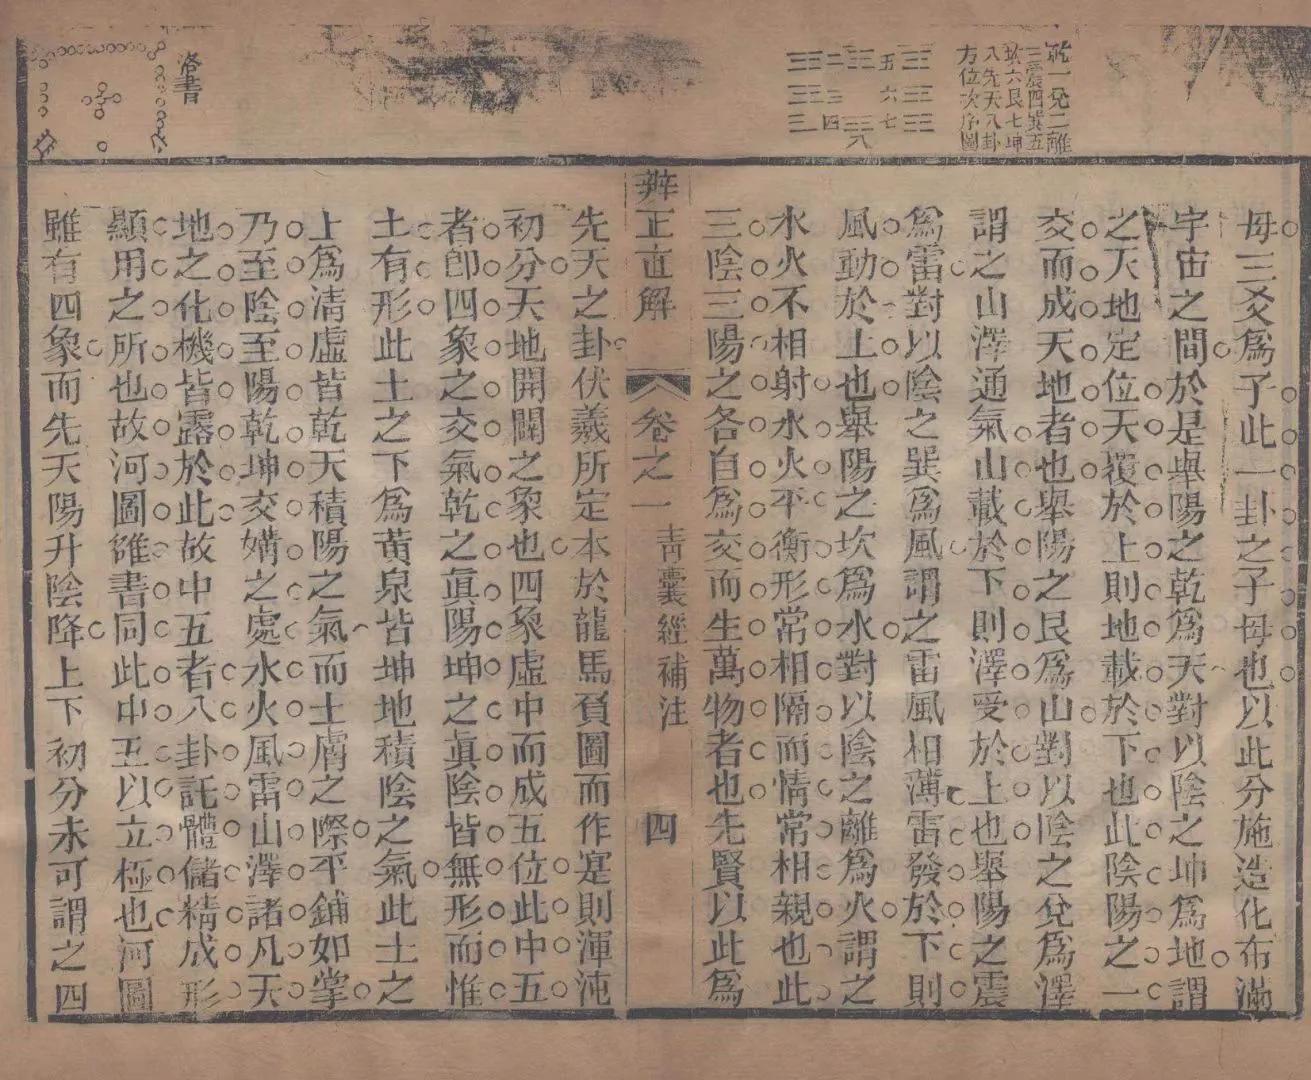 乾一兌二離
三震四巽五
坎六艮七坤
八先天八卦
方位次序圖
五
六
七
二
三
四
八
母三爻爲子此一卦之子母也以此分施造化布滿
宇宙之間於是舉陽之乾爲天對以陰之坤爲地謂
之天地定位天覆於上則地載於下也此陰陽之一
交而成天地者也舉陽之艮爲山對以陰之兌爲澤
謂之山澤通氣山載於下則澤受於上也舉陽之震
爲雷對以陰之巽爲風謂之雷風相薄雷發於下則
風動於上也舉陽之坎爲水對以陰之離爲火謂之
水火不相射水火平衡形常相隔而情常相親也此
三陰三陽之各自爲交而生萬物者也先賢以此爲
辨正直解
卷之一
青囊經補注
四
先天之卦伏羲所定本於龍馬負圖而作寔則渾沌
初分天地開闢之象也四象虛中而成五位此中五
者卽四象之交氣乾之眞陽坤之眞陰皆無形而惟
土有形此土之下爲黃泉皆坤地積陰之氣此土之
上爲清虛皆乾天積陽之氣而土膚之際平鋪如掌
乃至陰至陽乾坤交媾之處水火風雷山澤諸凡天
地之化機皆露於此故中五者八卦託體儲精成形
顯用之所也故河圖雒書同此中五以立極也河圖
雖有四象而先天陽升陰降上下初分未可謂之四
洛書